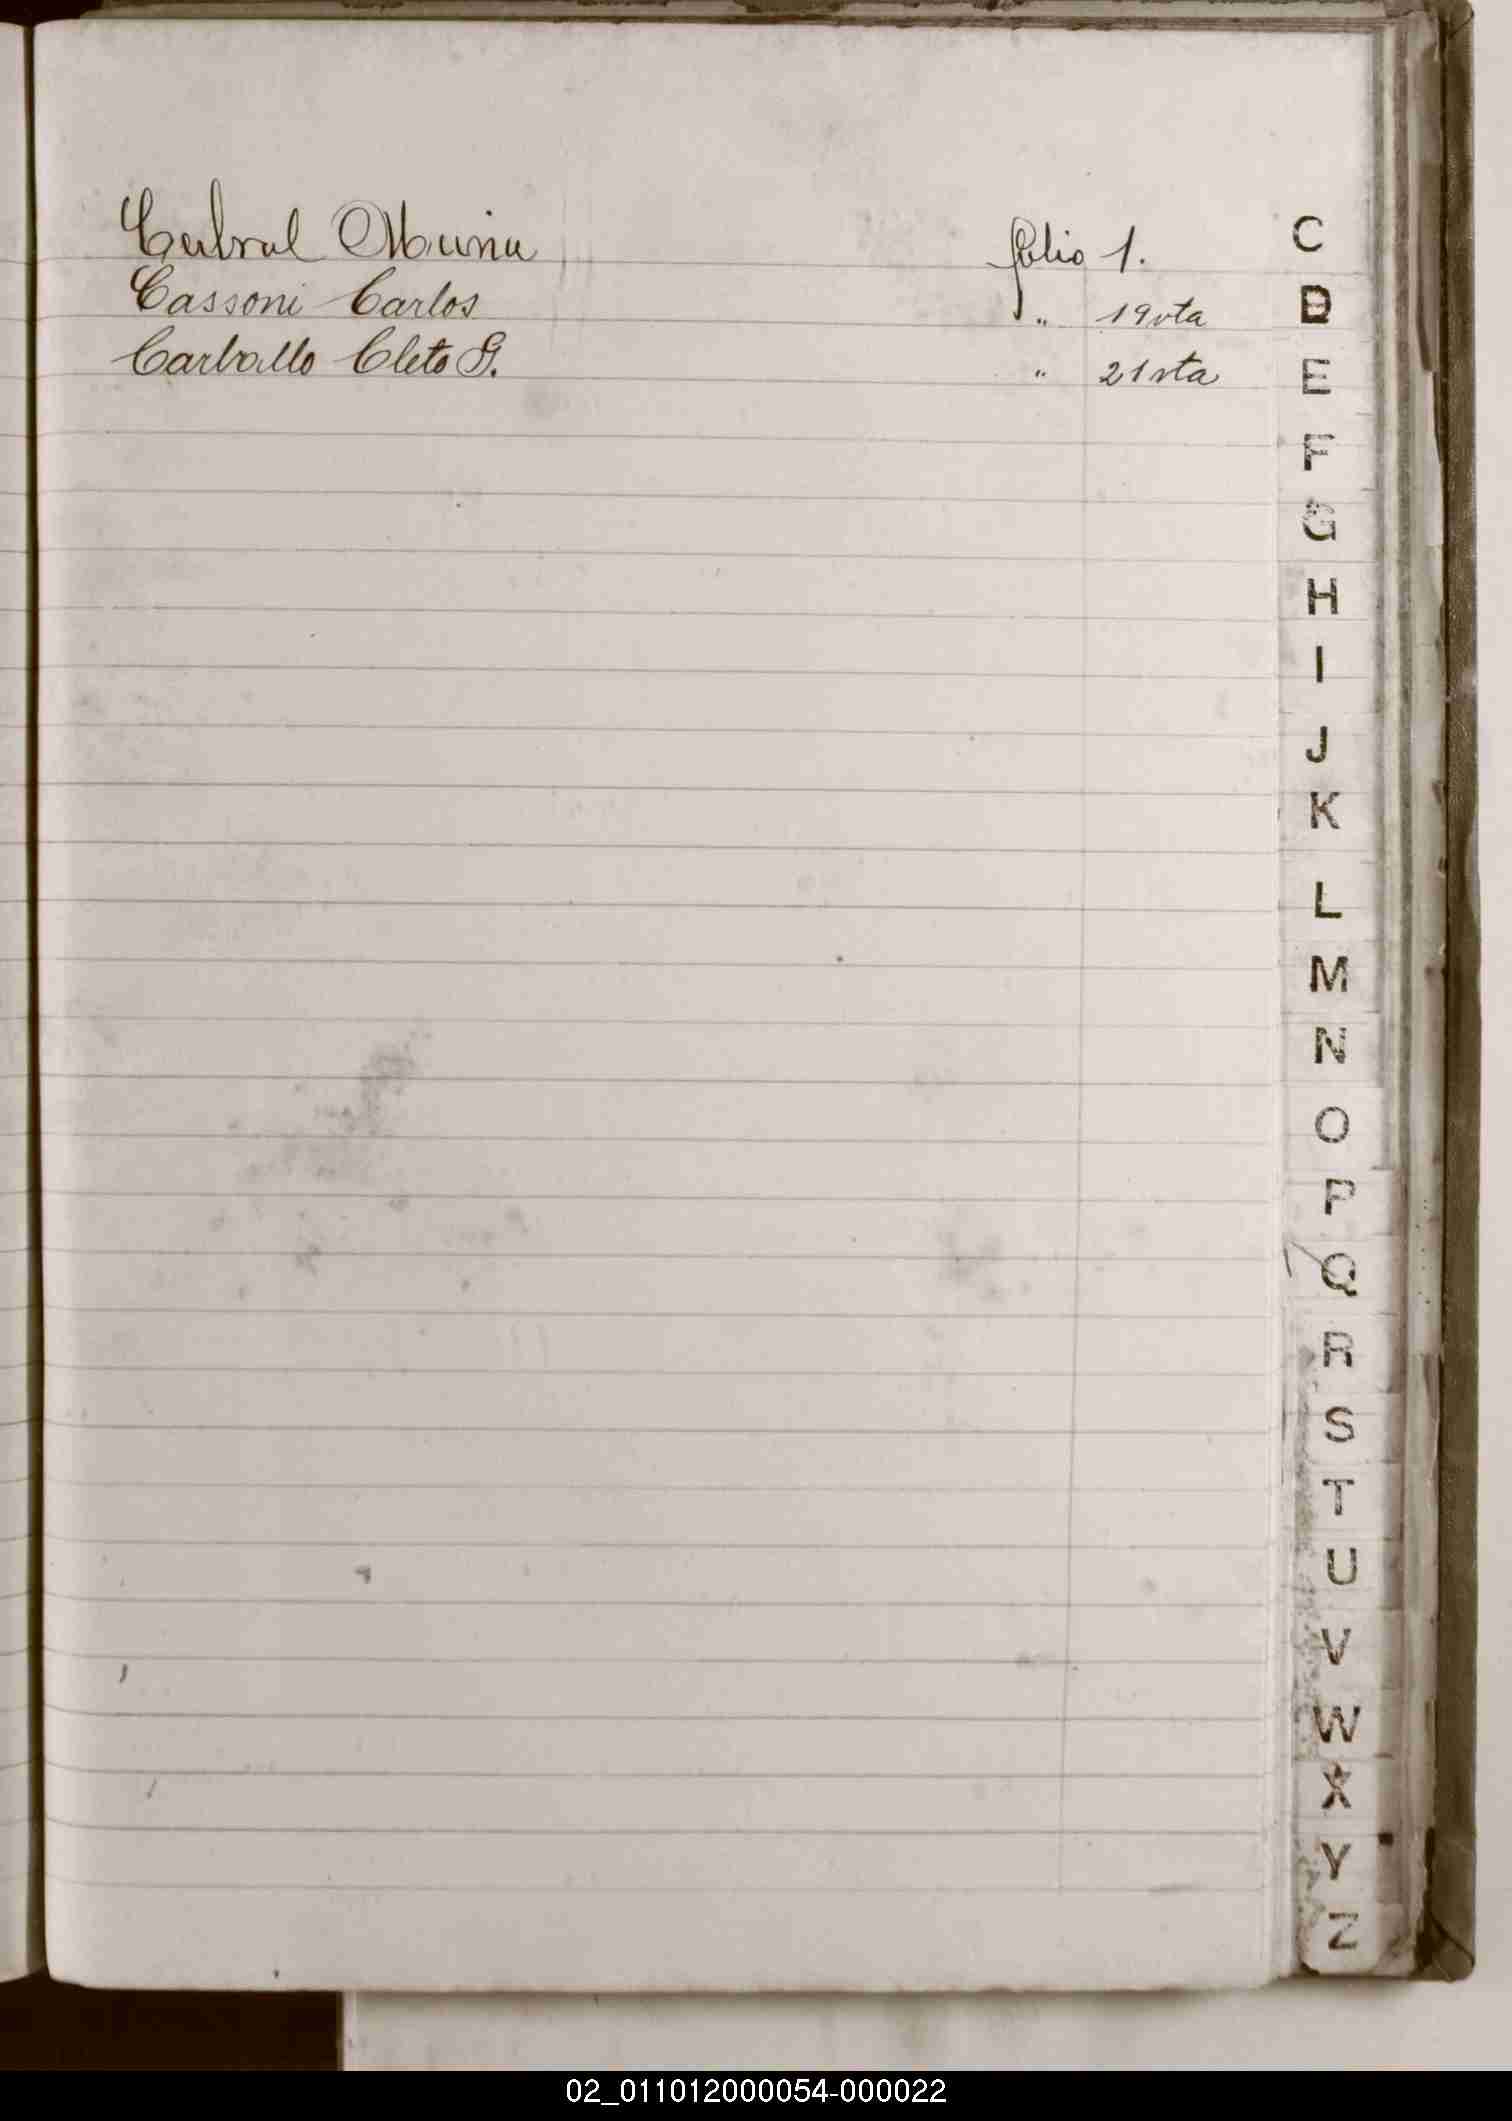 Cabral María folio 1.
Cassoni Carlos " 19vta
Carballo Cleto G. " 21vta
C
D
E
F
G
H
I
J
K
L
M
N
O
P
Q
R
S
T
U
V
W
X
Y
Z
02_011012000054-000022